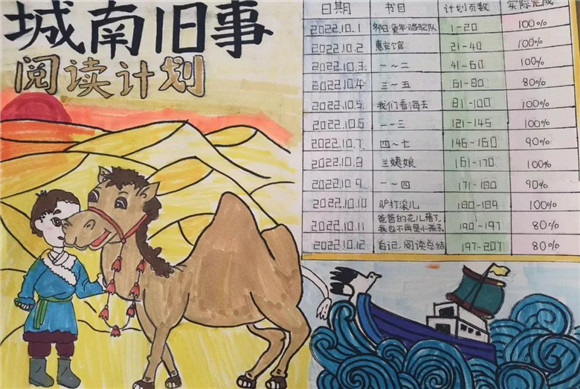 城南旧事
阅读计划
日期 书目 计划页数 实际完成
2022.10.1 冬阳·童年·骆驼队 1-20 100%
2022.10.2 惠安馆 21-40 100%
2022.10.3 一~二 41-60 100%
2022.10.4 三~五 61-80 80%
2022.10.5 我们看海去 81-100 100%
2022.10.6 一~三 121-145 100%
2022.10.7 四~七 146-160 90%
2022.10.8 兰姨娘 161-170 100%
2022.10.9 一~四 171-180 90%
2022.10.10 驴打滚儿 180-189 100%
2022.10.11 爸爸的花儿落了, 190-197 80%
我也不再是小孩子
2022.10.12 后记·阅读总结 197-207 80%